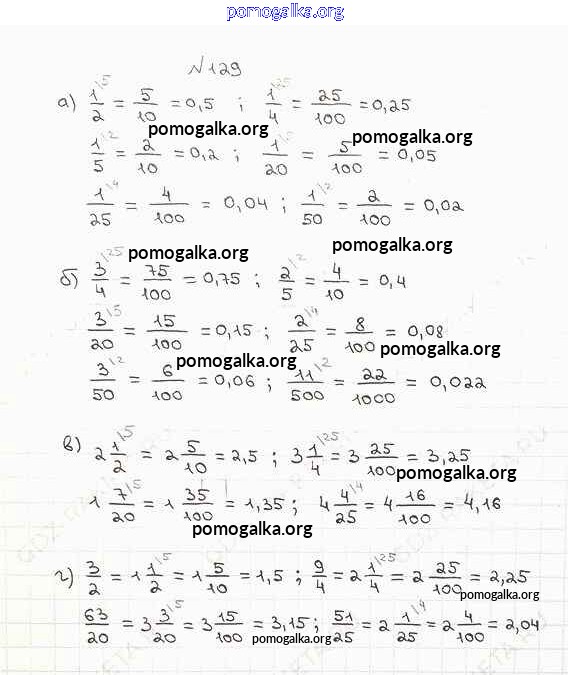 pomogalka.org
№129
а) 1/2 \5 = 5/10 = 0,5 ; 1/4 \25 = 25/100 = 0,25
pomogalka.org pomogalka.org
1/5 \2 = 2/10 = 0,2 ; 1/20 = 5/100 = 0,05
1/25 \4 = 4/100 = 0,04 ; 1/50 \2 = 2/100 = 0,02
pomogalka.org pomogalka.org
б) 3/4 \25 = 75/100 = 0,75 ; 2/5 \2 = 4/10 = 0,4
3/20 \5 = 15/100 = 0,15 ; 2/25 \4 = 8/100 = 0,08
pomogalka.org pomogalka.org
3/50 \2 = 6/100 = 0,06 ; 11/500 \2 = 22/1000 = 0,022
в) 2 1/2 \5 = 2 5/10 = 2,5 ; 3 1/4 \25 = 3 25/100 = 3,25
pomogalka.org
1 7/20 \5 = 1 35/100 = 1,35 ; 4 4/25 \4 = 4 16/100 = 4,16
pomogalka.org
г) 3/2 = 1 1/2 \5 = 1 5/10 = 1,5 ; 9/4 = 2 1/4 \25 = 2 25/100 = 2,25
pomogalka.org
63/20 = 3 3/20 \5 = 3 15/100 = 3,15 ; 51/25 = 2 1/25 \4 = 2 4/100 = 2,04
pomogalka.org